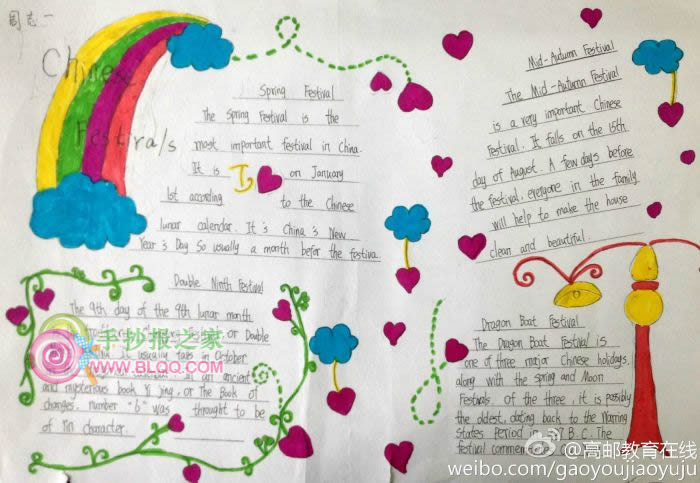 周志一
Chinese
Festivals
Spring Festival
The Spring Festival is the
most important festival in China.
It is on January
1st according to the Chinese
lunar calendar. It's China's New
Year's Day. So usually a month befor the festiva
Mid-Autumn Festival
The Mid-Autumn Festival
is a very important Chinese
Festival. It falls on the 15th
day of August. A few days before
the festival, everyone in the family
will help to make the house
clean and beautiful.
Double Ninth Festival
The 9th day of the 9th lunar month
or Double
It usually falls in October
an ancient
and mysterious book Yi Jing, or The Book of
changes, number "6" was thought to be
of Yin character.
Dragon Boat Festival
The Dragon Boat Festival is
one of three major Chinese holidays,
along with the Spring and Moon
Festivals. Of the three, it is possibly
the oldest, dating back to the Warring
States Period in B.C. The
festival
手抄报之家
WWW.BLQQ.COM
@高邮教育在线
weibo.com/gaoyoujiaoyuju